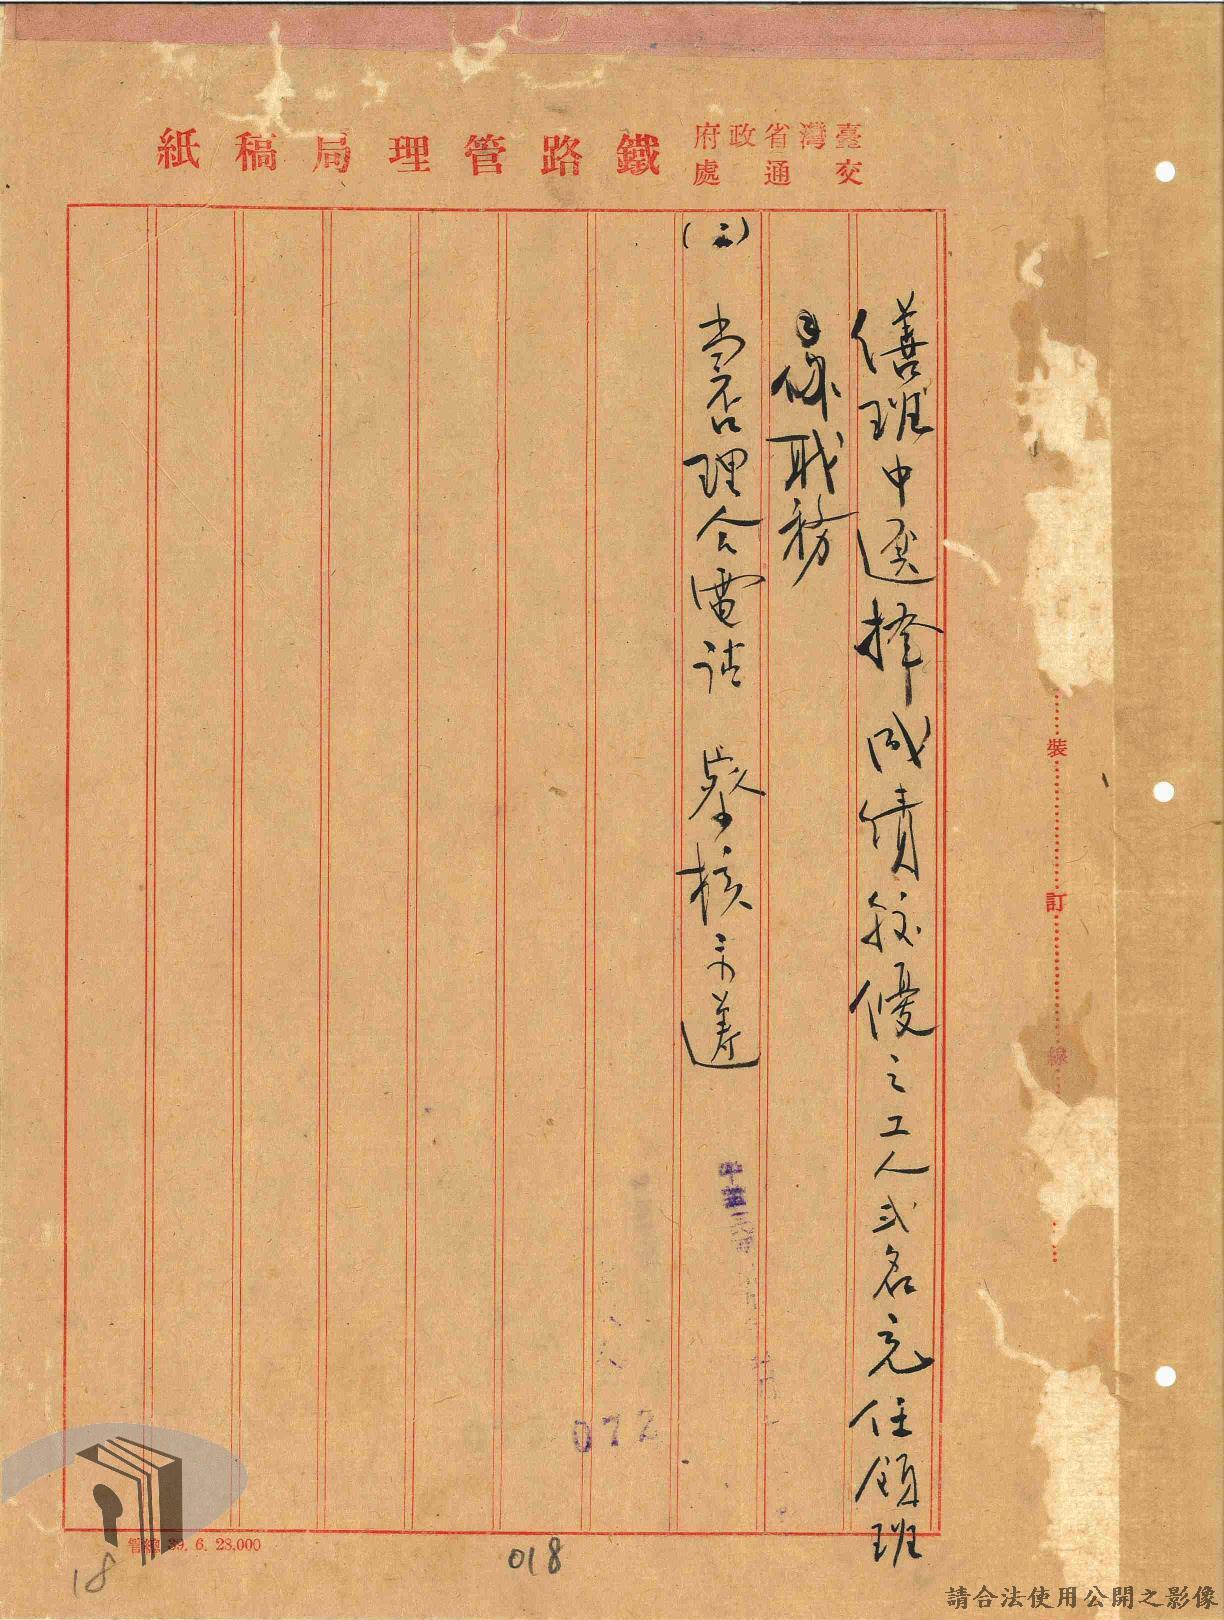 臺灣省政府
交通處
鐵路管理局稿紙
繕班中選擇成績較優之工人弍名充任領班
職務
(三)
當否理合電請 察核示遵
裝
訂
線
072
管總 39. 6. 23,000
018
18
請合法使用公開之影像